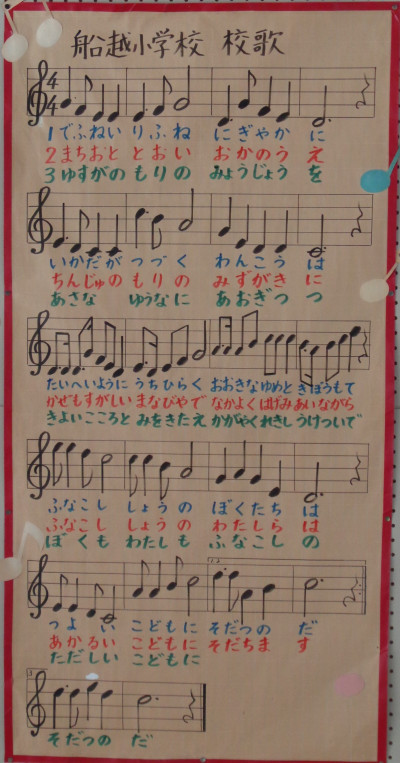 船越小学校 校歌
1でふねいりふね にぎやかに
2まちおととおい おかのうえ
3ゆすがのもりの みょうじょうを
いかだがつづく わんこうは
ちんじゅのもりの みずがきに
あさなゆうなに あおぎつつ
たいへいように うちひらく おおきなゆめと きぼうもて
かぜもすがしい まなびやで なかよくはげみあいながら
きよいこころと みをきたえ かがやくれきし うけついで
ふなこししょうの ぼくたちは
ふなこししょうの わたしらは
ぼくもわたしも ふなこしの
つよいこどもに そだつのだ
あかるいこどもに そだちます
ただしいこどもに
そだつのだ